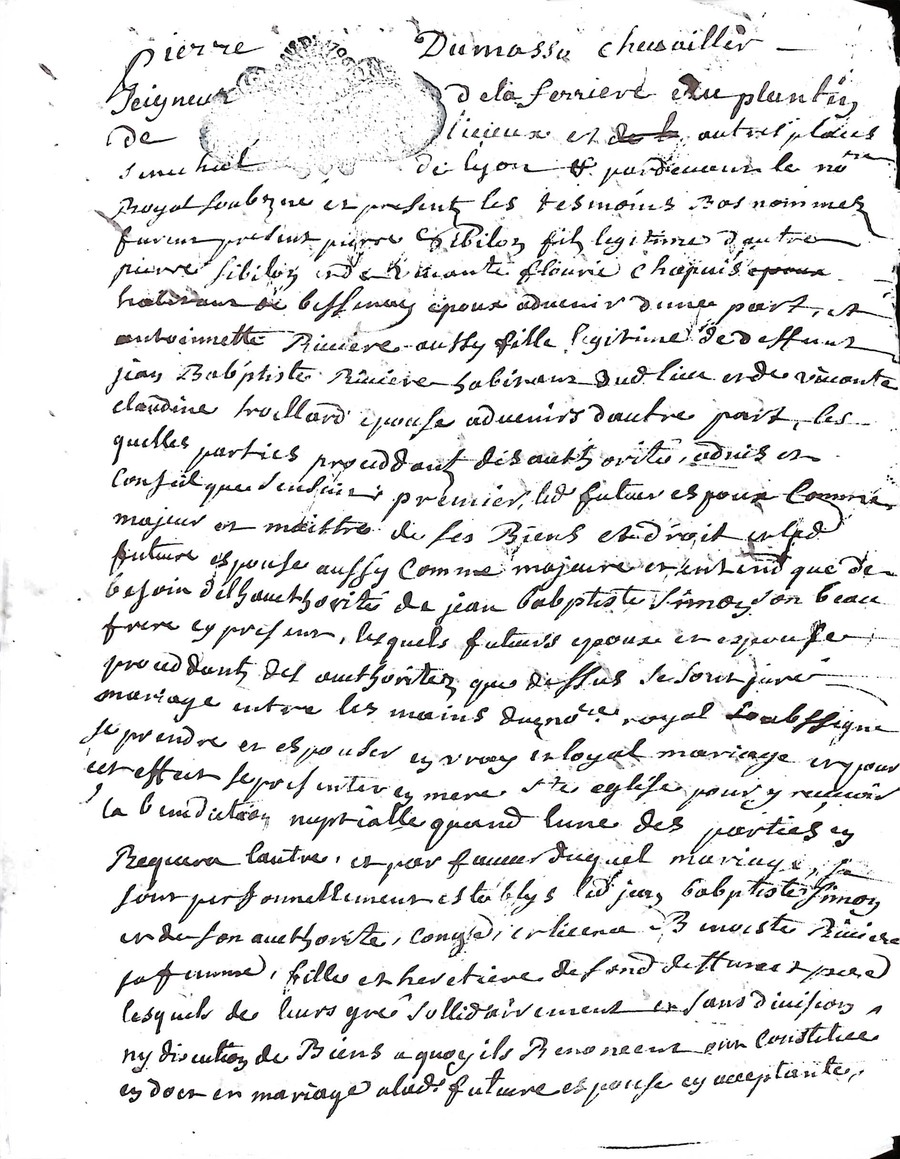 Pierre Dumasse chevaillier
Seigneur de la ferriere du plantin
de licieux et autres places
senechal de lyon & pardevant le no.re
Royal soubzné et presentz les tesmoins Bas nommez
furent present pierre Sibilon fils legitime dautre
pierre sibilon et de vivante flourie chapuis epoux
habitant de bessenay epoux advenir dune part, et
antoinette Riviere aussy fille legitime de deffunt
jean Babptiste Riviere habitant dud lieu et de vivante
claudine trollard epouse advenir dautre part, les
quelles parties proceddant des authorité, advis et
Conseil que sensuit, premier, led futur espoux Comme
majeur et maittre de ses Biens et droit et lad
future espouse aussy Comme majeure et entend que de
besoin delhauthorité de jean babptiste Simon son beau
frere cy present, lesquels futurs epoux et espouse
proceddant des authoritez que dessus se sont juré
mariage entre les mains du no.re royal soubssigné
se prendre et espouser en vray et loyal mariage et pour
cet effect se presenter en mere s.te eglise pour y recevoir
la benediction nuptialle quand lune des parties en
Requera lautre, et par faveur duquel mariage, se
sont personnellement establys led jean babptiste Simon
et de son authorité, congé, et licence Benoiste Riviere
sa femme, fille et heretiere de fond deffunct pere
lesquels de leurs gré sollidairement et sans division
ny discution de Biens a quoy ils Renoncent ont Constitué
en dot en mariage a lad.e future espouse cy acceptante,